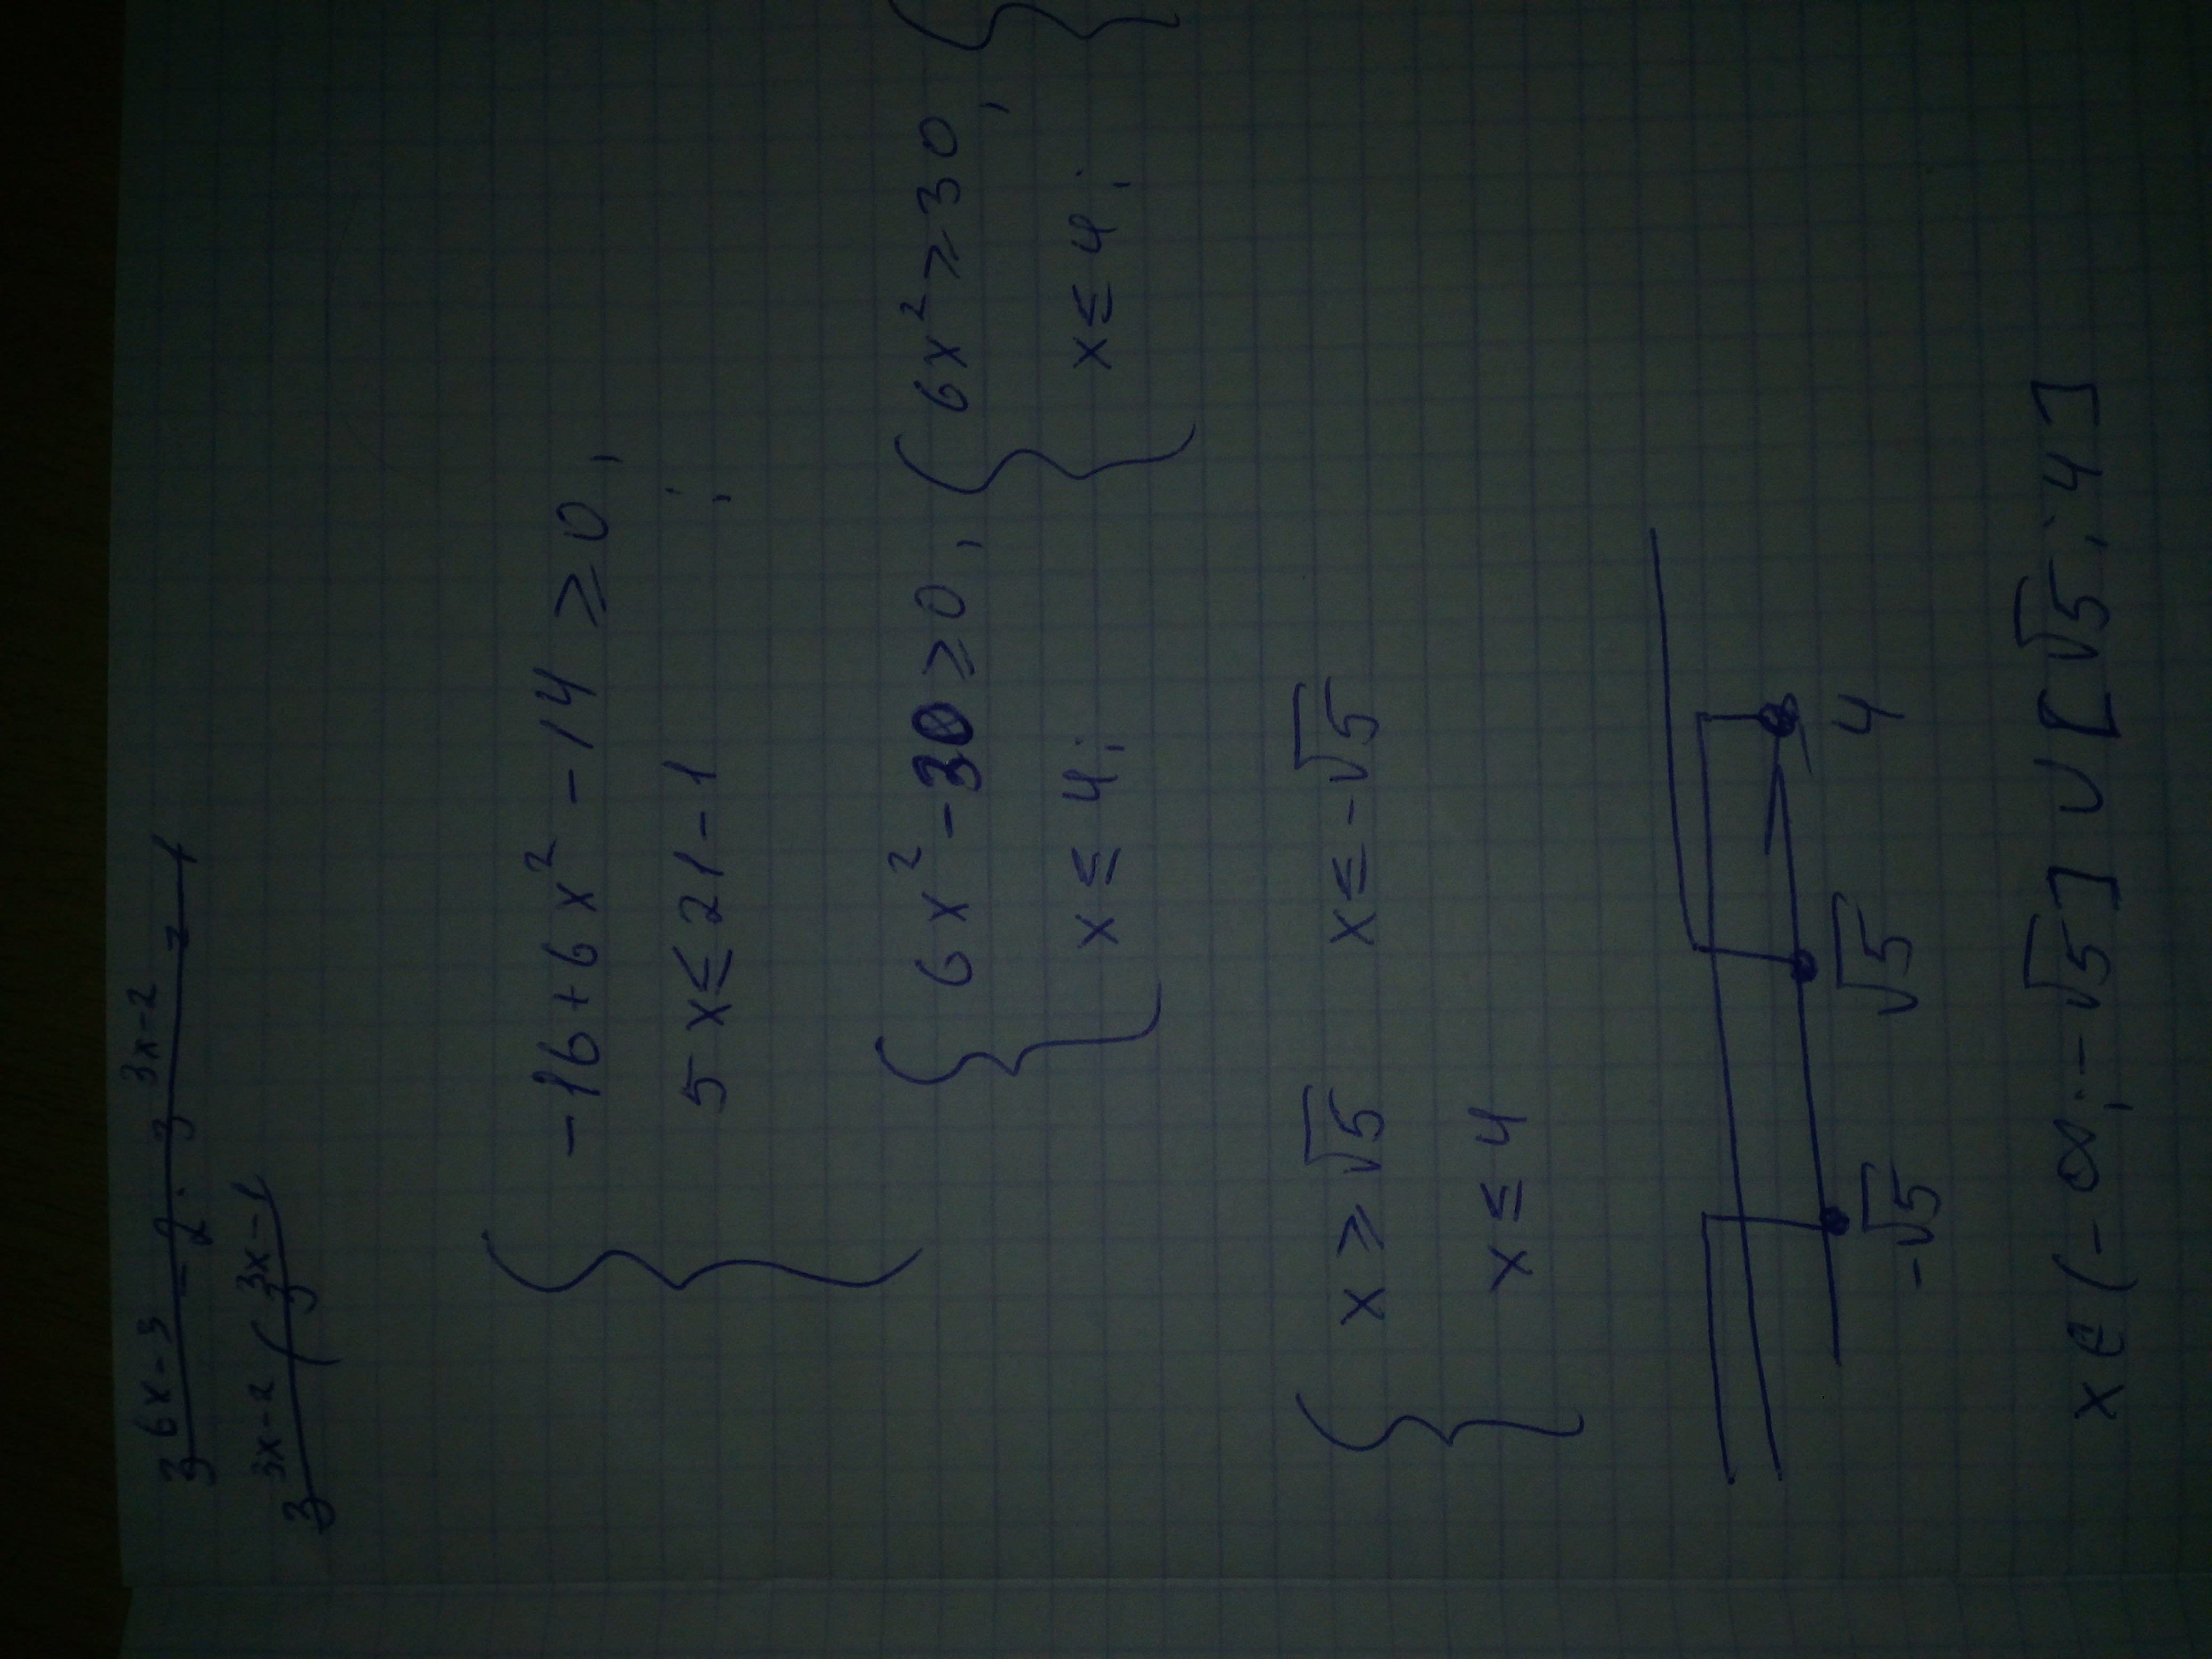 3^{6x-3} - 2 · 3^{3x-2} = 1
3^{3x-2} (3^{3x-1}
{ -16 + 6x² - 14 ≥ 0,
5x ≤ 21 - 1 ;
{ 6x² - 30 ≥ 0, { 6x² ≥ 30, {
x ≤ 4; x ≤ 4;
{ x ≥ √5 x ≤ -√5
x ≤ 4
-√5 √5 4
x ∈ (-∞; -√5] ∪ [√5; 4]